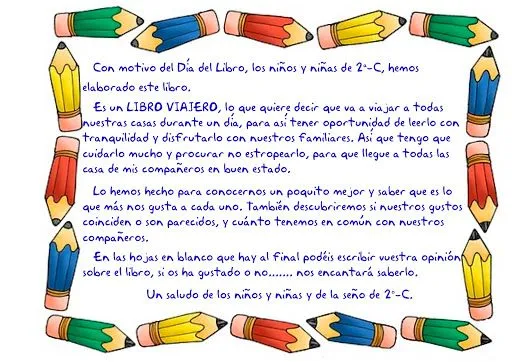 Con motivo del Día del Libro, los niños y niñas de 2º-C, hemos
elaborado este libro.
Es un LIBRO VIAJERO, lo que quiere decir que va a viajar a todas
nuestras casas durante un día, para así tener oportunidad de leerlo con
tranquilidad y disfrutarlo con nuestros familiares. Así que tengo que
cuidarlo mucho y procurar no estropearlo, para que llegue a todas las
casa de mis compañeros en buen estado.
Lo hemos hecho para conocernos un poquito mejor y saber que es lo
que más nos gusta a cada uno. También descubriremos si nuestros gustos
coinciden o son parecidos, y cuánto tenemos en común con nuestros
compañeros.
En las hojas en blanco que hay al final podéis escribir vuestra opinión
sobre el libro, si os ha gustado o no....... nos encantará saberlo.
Un saludo de los niños y niñas y de la seño de 2º-C.